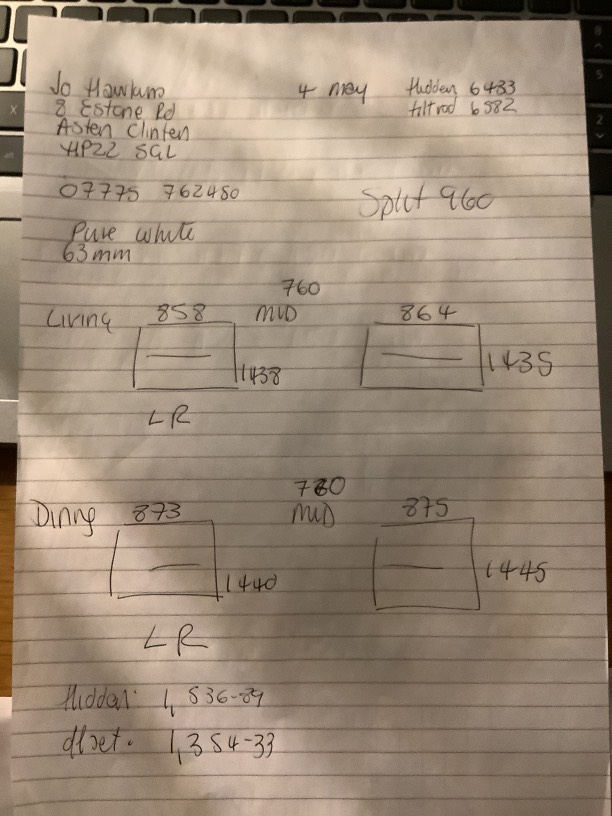 Jo Hawkins 4 May Hidden 6433
8 Estone Rd tiltrod 6582
Aston Clinton
HP22 5GL
07775 762480 Split 960
Pure white
63mm
760
Living 858 MID 864
1438 1435
L R
780
Dining 873 MID 875
1440 1445
L R
Hidden: 1,536-89
1,354-33